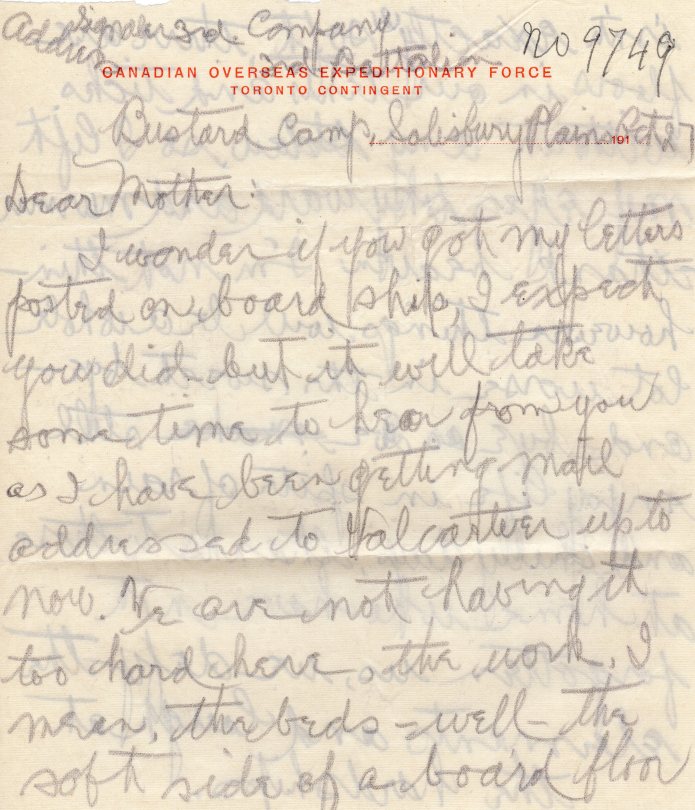 Signaler 3rd Company
Address 2nd Battalion No 9749
CANADIAN OVERSEAS EXPEDITIONARY FORCE
TORONTO CONTINGENT
Bustard Camp, Salisbury Plains Oct 27 191
Dear Mother.
I wonder if you got my letters
posted on board ship, I expect
you did but it will take
some time to hear from you
as I have been getting mail
addressed to Valcartier up to
now. We are not having it
too hard here, the work, I
mean, the beds - well - the
soft side of a board floor